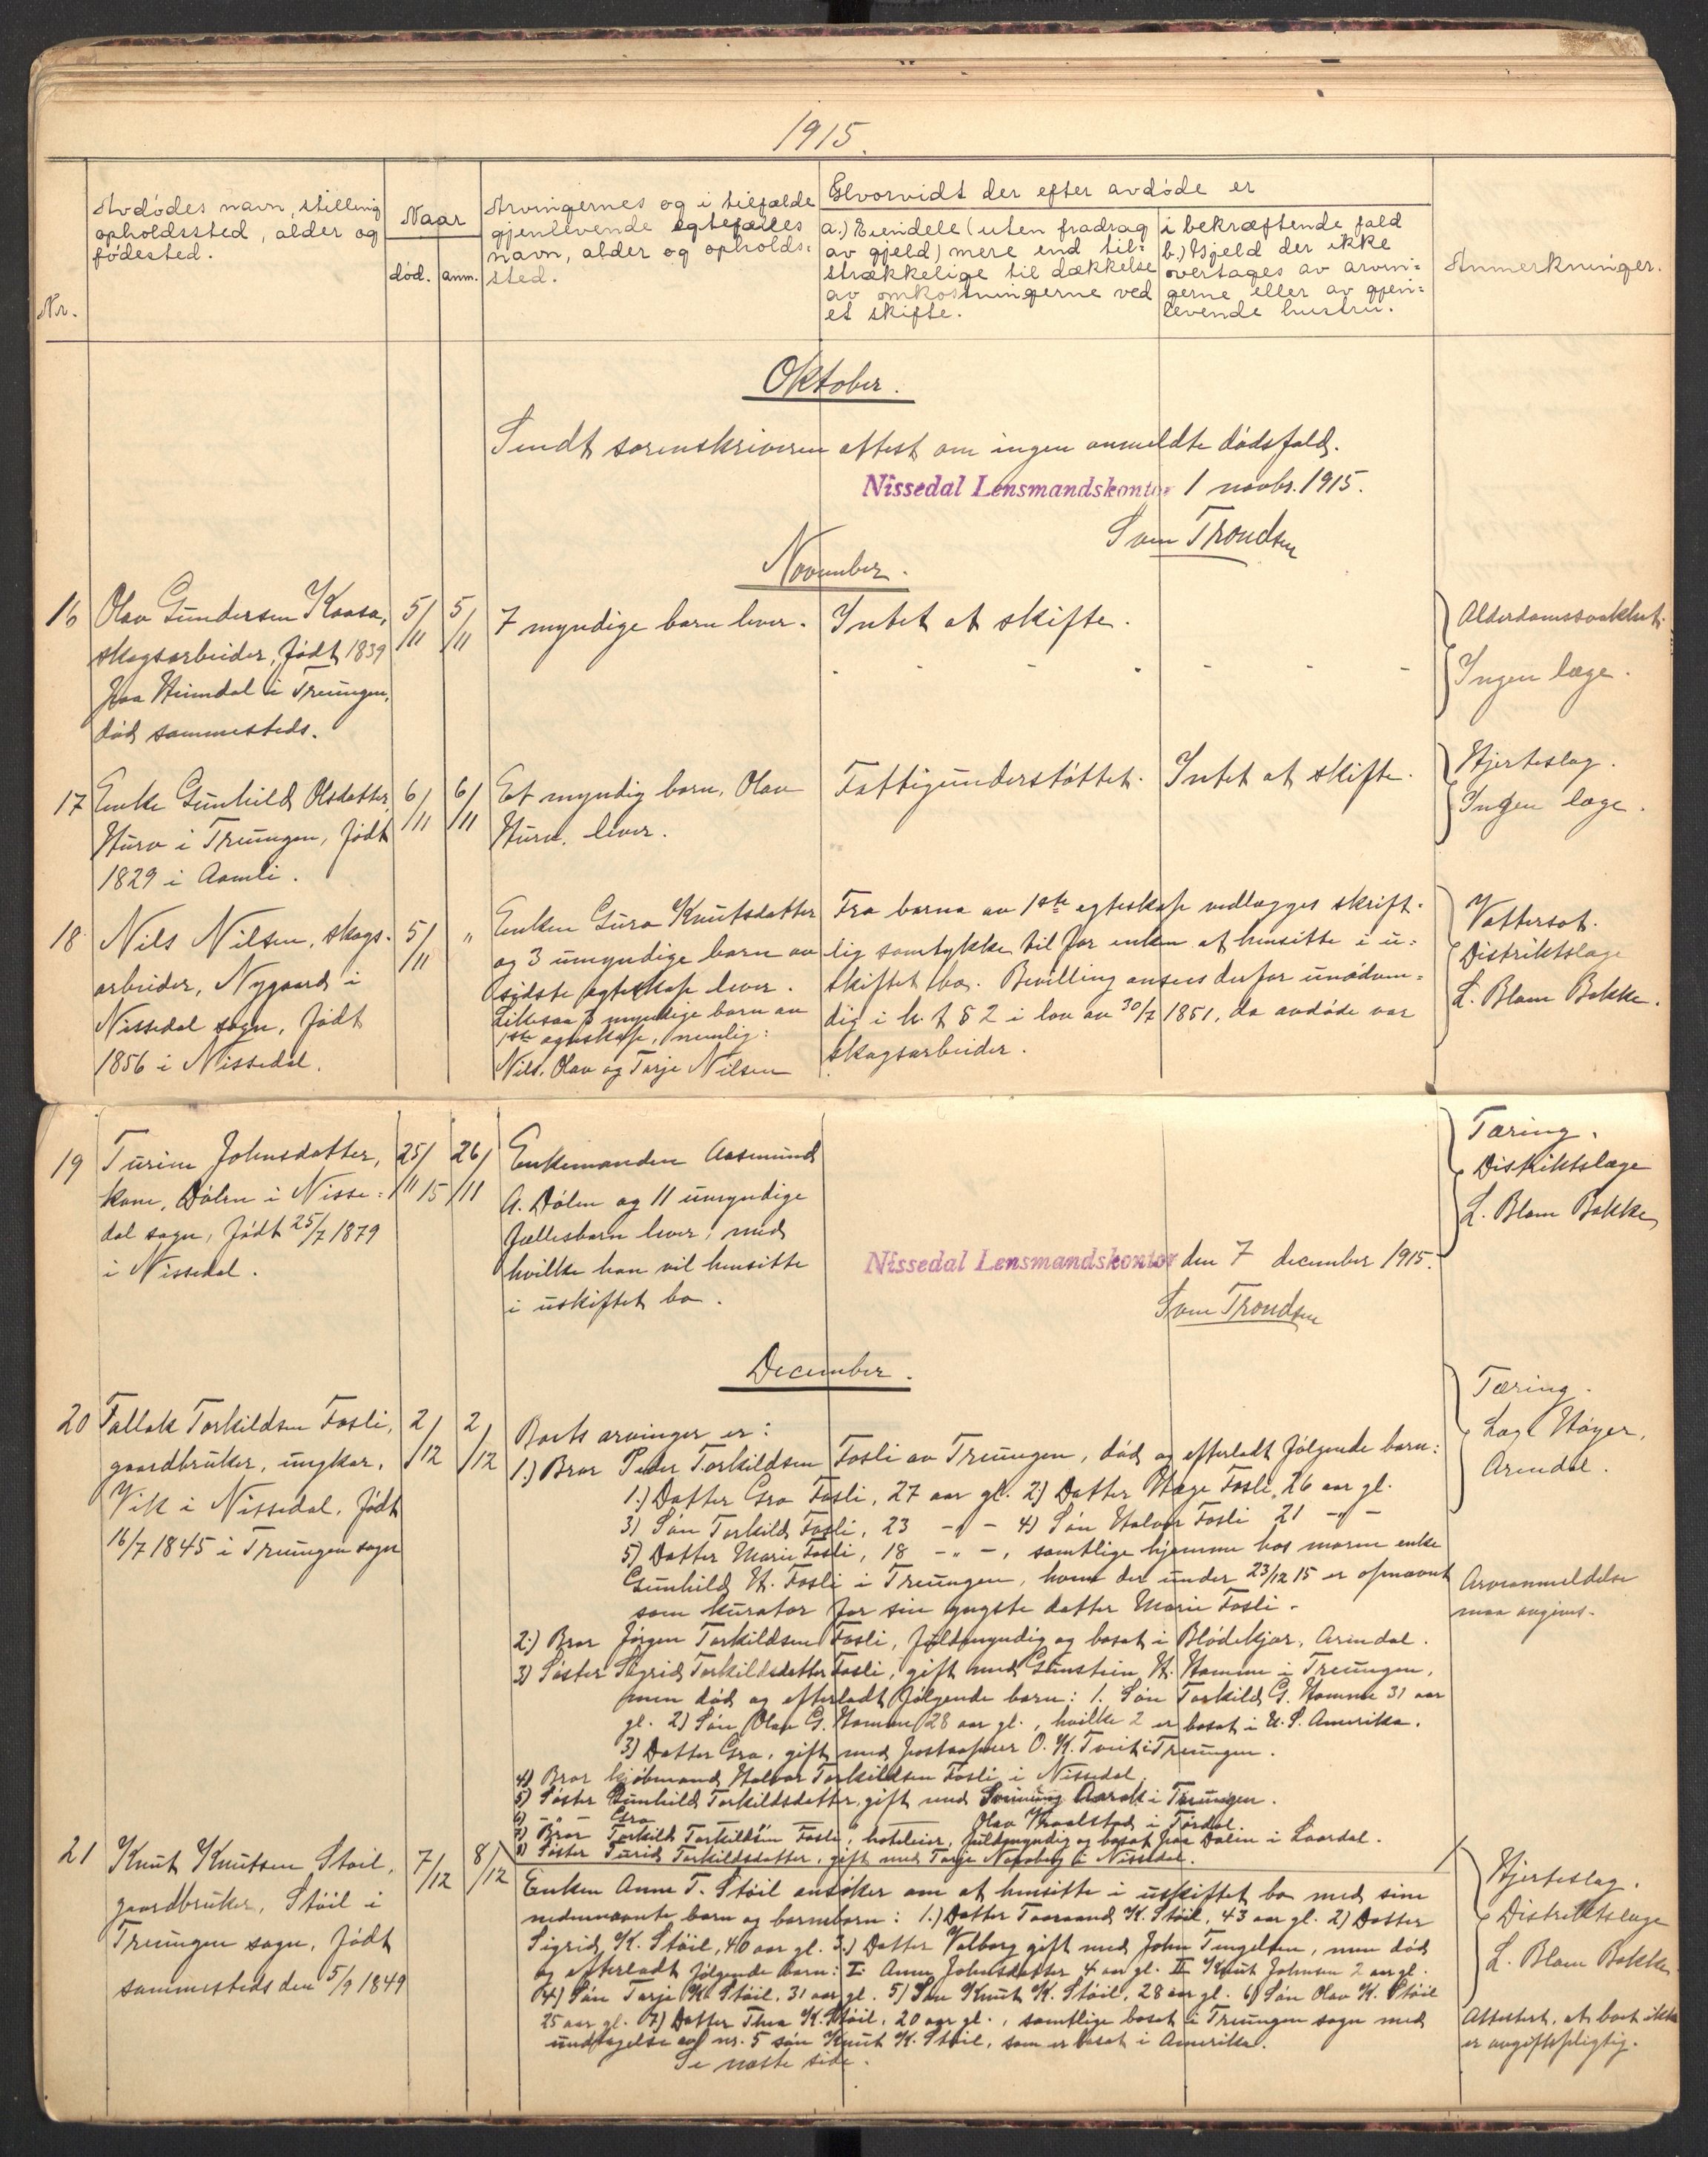 1915.
Nr.
Avdødes navn, stilling
opholdssted, alder og
fødested.
Naar
død. anm.
Arvingernes og i tilfælde
gjenlevende egtefælles
navn, alder og opholds:
sted.
Hvorvidt der efter avdøde er
a.) Eiendele (uten fradrag
av gjeld) mere end til:
strækkelige til dækkelse
av omkostningerne ved
et skifte.
i bekræftende fald
b.) Gjeld der ikke
overtages av arvin:
gerne eller av gjen:
levende hustru.
Anmerkninger.
Oktober.
Sendt sorenskriveren attest om ingen anmeldte dødsfald.
Nissedal Lensmandskontor 1 novbr. 1915.
Sven Trondsen
November.
16 Olav Gundersen Kaasa,
skogsarbeider, født 1839
paa Heimdal i Treungen,
død sammesteds.
5/11 5/11
7 myndige barn lever.
Intet at skifte.
Alderdomssvakhet.
Ingen læge.
17 Enke Gunhild Olsdatter
Huru i Treungen, født
1829 i Aamli.
6/11 6/11
Et myndig barn, Olav
Huru, lever.
Fattigunderstøttet. Intet at skifte.
Hjerteslag.
Ingen læge.
18 Nils Nilsen, skogs-
arbeider, Nygaard i
Nissedal sogn, født
1856 i Nissedal.
5/11 "
Enken Guro Knutsdatter
og 3 umyndige barn av
sidste egteskap lever.
Likesaa 3 myndige barn av
1ste egteskap, nemlig:
Nils, Olav og Tarje Nilsen
Fra barna av 1ste egteskap vedlægges skrift-
lig samtykke til for enken at hensitte i u:
skiftet bo. Bevilling ansees derfor unødven:
dig i h. t. § 2 i lov av 30/7 1851, da avdøde var
skogsarbeider.
Vattersot.
Distriktslæge
L. Blom Bakke.
19 Turine Johnsdatter,
kone, Dølen i Nisse:
dal sogn, født 25/7 1879
i Nissedal.
25/11 15 26/11
Enkemanden Aasmund
A. Dølen og 11 umyndige
fællesbarn lever, med
hvilke han vil hensitte
i uskiftet bo.
Tæring.
Distriktslæge
L. Blom Bakke
Nissedal Lensmandskontor den 7 december 1915.
Sven Trondsen
December.
20 Tallak Torkildsen Fosli,
gaardbruker, ungkar,
Vik i Nissedal, født
16/7 1845 i Treungen sogn
2/12 2/12
Boets arvinger er:
1.) Bror Peder Torkildsen Fosli av Treungen, død og efterladt følgende barn:
1.) Datter Gro Fosli, 27 aar gl. 2.) Datter Hæge Fosli 26 aar gl.
3) Søn Torkild Fosli, 23 - " - 4) Søn Halvor Fosli 21 - " -
5) Datter Marie Fosli, 18 - " -, samtlige hjemme hos moren enke
Gunhild H. Fosli i Treungen, hvem der under 23/12 15 er opnævnt
som kurator for sin yngste datter Marie Fosli.
2.) Bror Jørgen Torkildsen Fosli, fuldmyndig og bosat i Blødekjær, Arendal.
3) Søster Sigrid Torkildsdatter Fosli, gift med Gunstein H. Homme i Treungen,
men død og efterladt følgende barn: 1. Søn Torkild G. Homme 31 aar
gl. 2) Søn Olav G. Homme 28 aar gl., hvilke 2 er bosat i U. S. Amerika.
3) Datter Gro, gift med postaapner O. K. Tveit i Treungen.
4) Bror kjøbmand Halvor Torkildsen Fosli i Nissedal.
5) Søster Gunhild Torkildsdatter, gift med Aarak i Treungen.
6) - " - Gro Olav Kraalstad i Tørdal.
7) Bror Torkild Torkildsen Fosli, hoteleier, fuldmyndig og bosat paa Dalen i Laardal.
8) Søster Turid Torkildsdatter, gift med Tarje i Nissedal.
Tæring.
Læge Høyer,
Arendal.
Arveanmeldelse
maa avgives.
21 Knut Knutsen Støil,
gaardbruker, Støil i
Treungen sogn, født
sammesteds den 5/9 1849
7/12 8/12
Enken Anne T. Støil ansøker om at hensitte i uskiftet bo med sine
nedennævnte barn og barnebarn: 1.) Datter Taaraand K. Støil, 43 aar gl. 2) Datter
Sigrid K. Støil, 40 aar gl. 3.) Datter Valborg gift med John Tengelsen, men død
og efterladt følgende barn: I Anne Johnsdatter 4 aar gl. II Knut Johnsen 2 aar gl.
4) Søn Tarje K. Støil, 31 aar gl. 5) Søn Knut K. Støil, 28 aar gl. 6) Søn Olav K. Støil
25 aar gl. 7) Datter Thea K. Støil, 20 aar gl., samtlige bosat i Treungen sogn med
undtagelse av nr. 5 søn Knut K. Støil, som er bosat i Amerika.
Se næste side.
Hjerteslag.
Distriktslæge
L. Blom Bakke.
Attestert, at boet ikke
er avgiftspligtig.